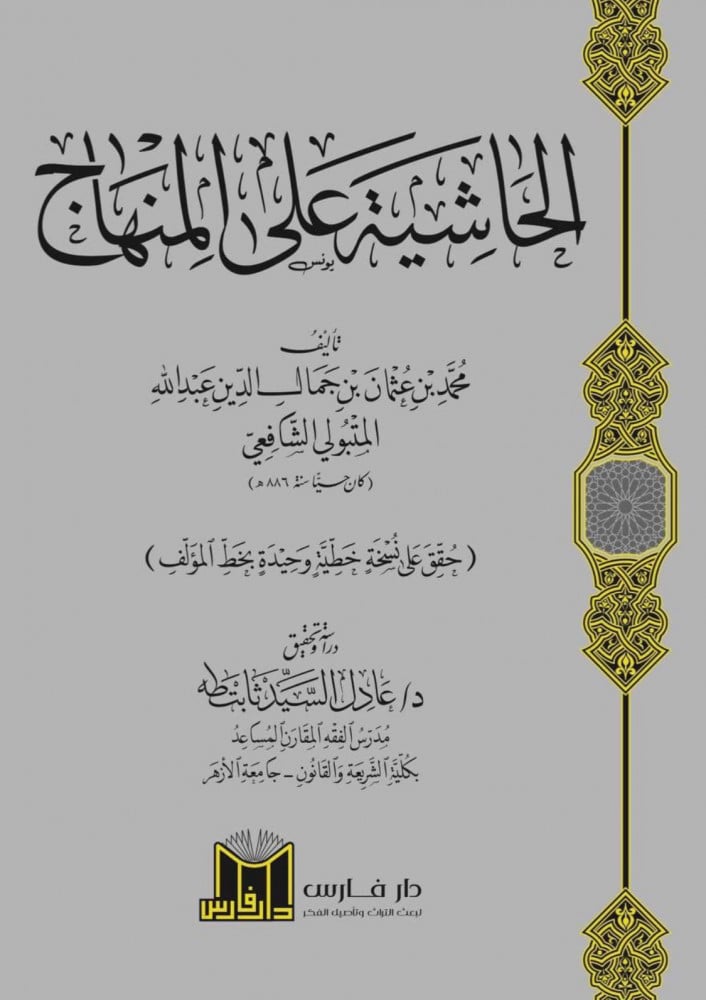 الحَاشِيَة عَلى المِنْهَاج
يونس
تأليفُ
مُحمَّد بْن عُثْمَانَ بْن جَمَالِ الدِّينِ عَبْدِ اللهِ
المَتْبُولي الشَّافِعيّ
(كان حيًّا سنة ٨٨٦ هـ)
(حُقِّقَ عَلى نُسْخَةٍ خَطِّيَّةٍ وَحِيْدَةٍ بِخَطِّ المؤلِّفِ)
دراسة وتحقيق
د/ عَادِل السَّيِّد ثَابِت طه
مُدَرِّسُ الفِقْهِ المُقَارَنِ المُسَاعِدُ
بكُلِّيَّةِ الشَّرِيعَةِ وَالقَانُونِ - جَامِعَة الأزْهَر
دار فارس
دار فارس
لبعث التراث وتأصيل الفكر